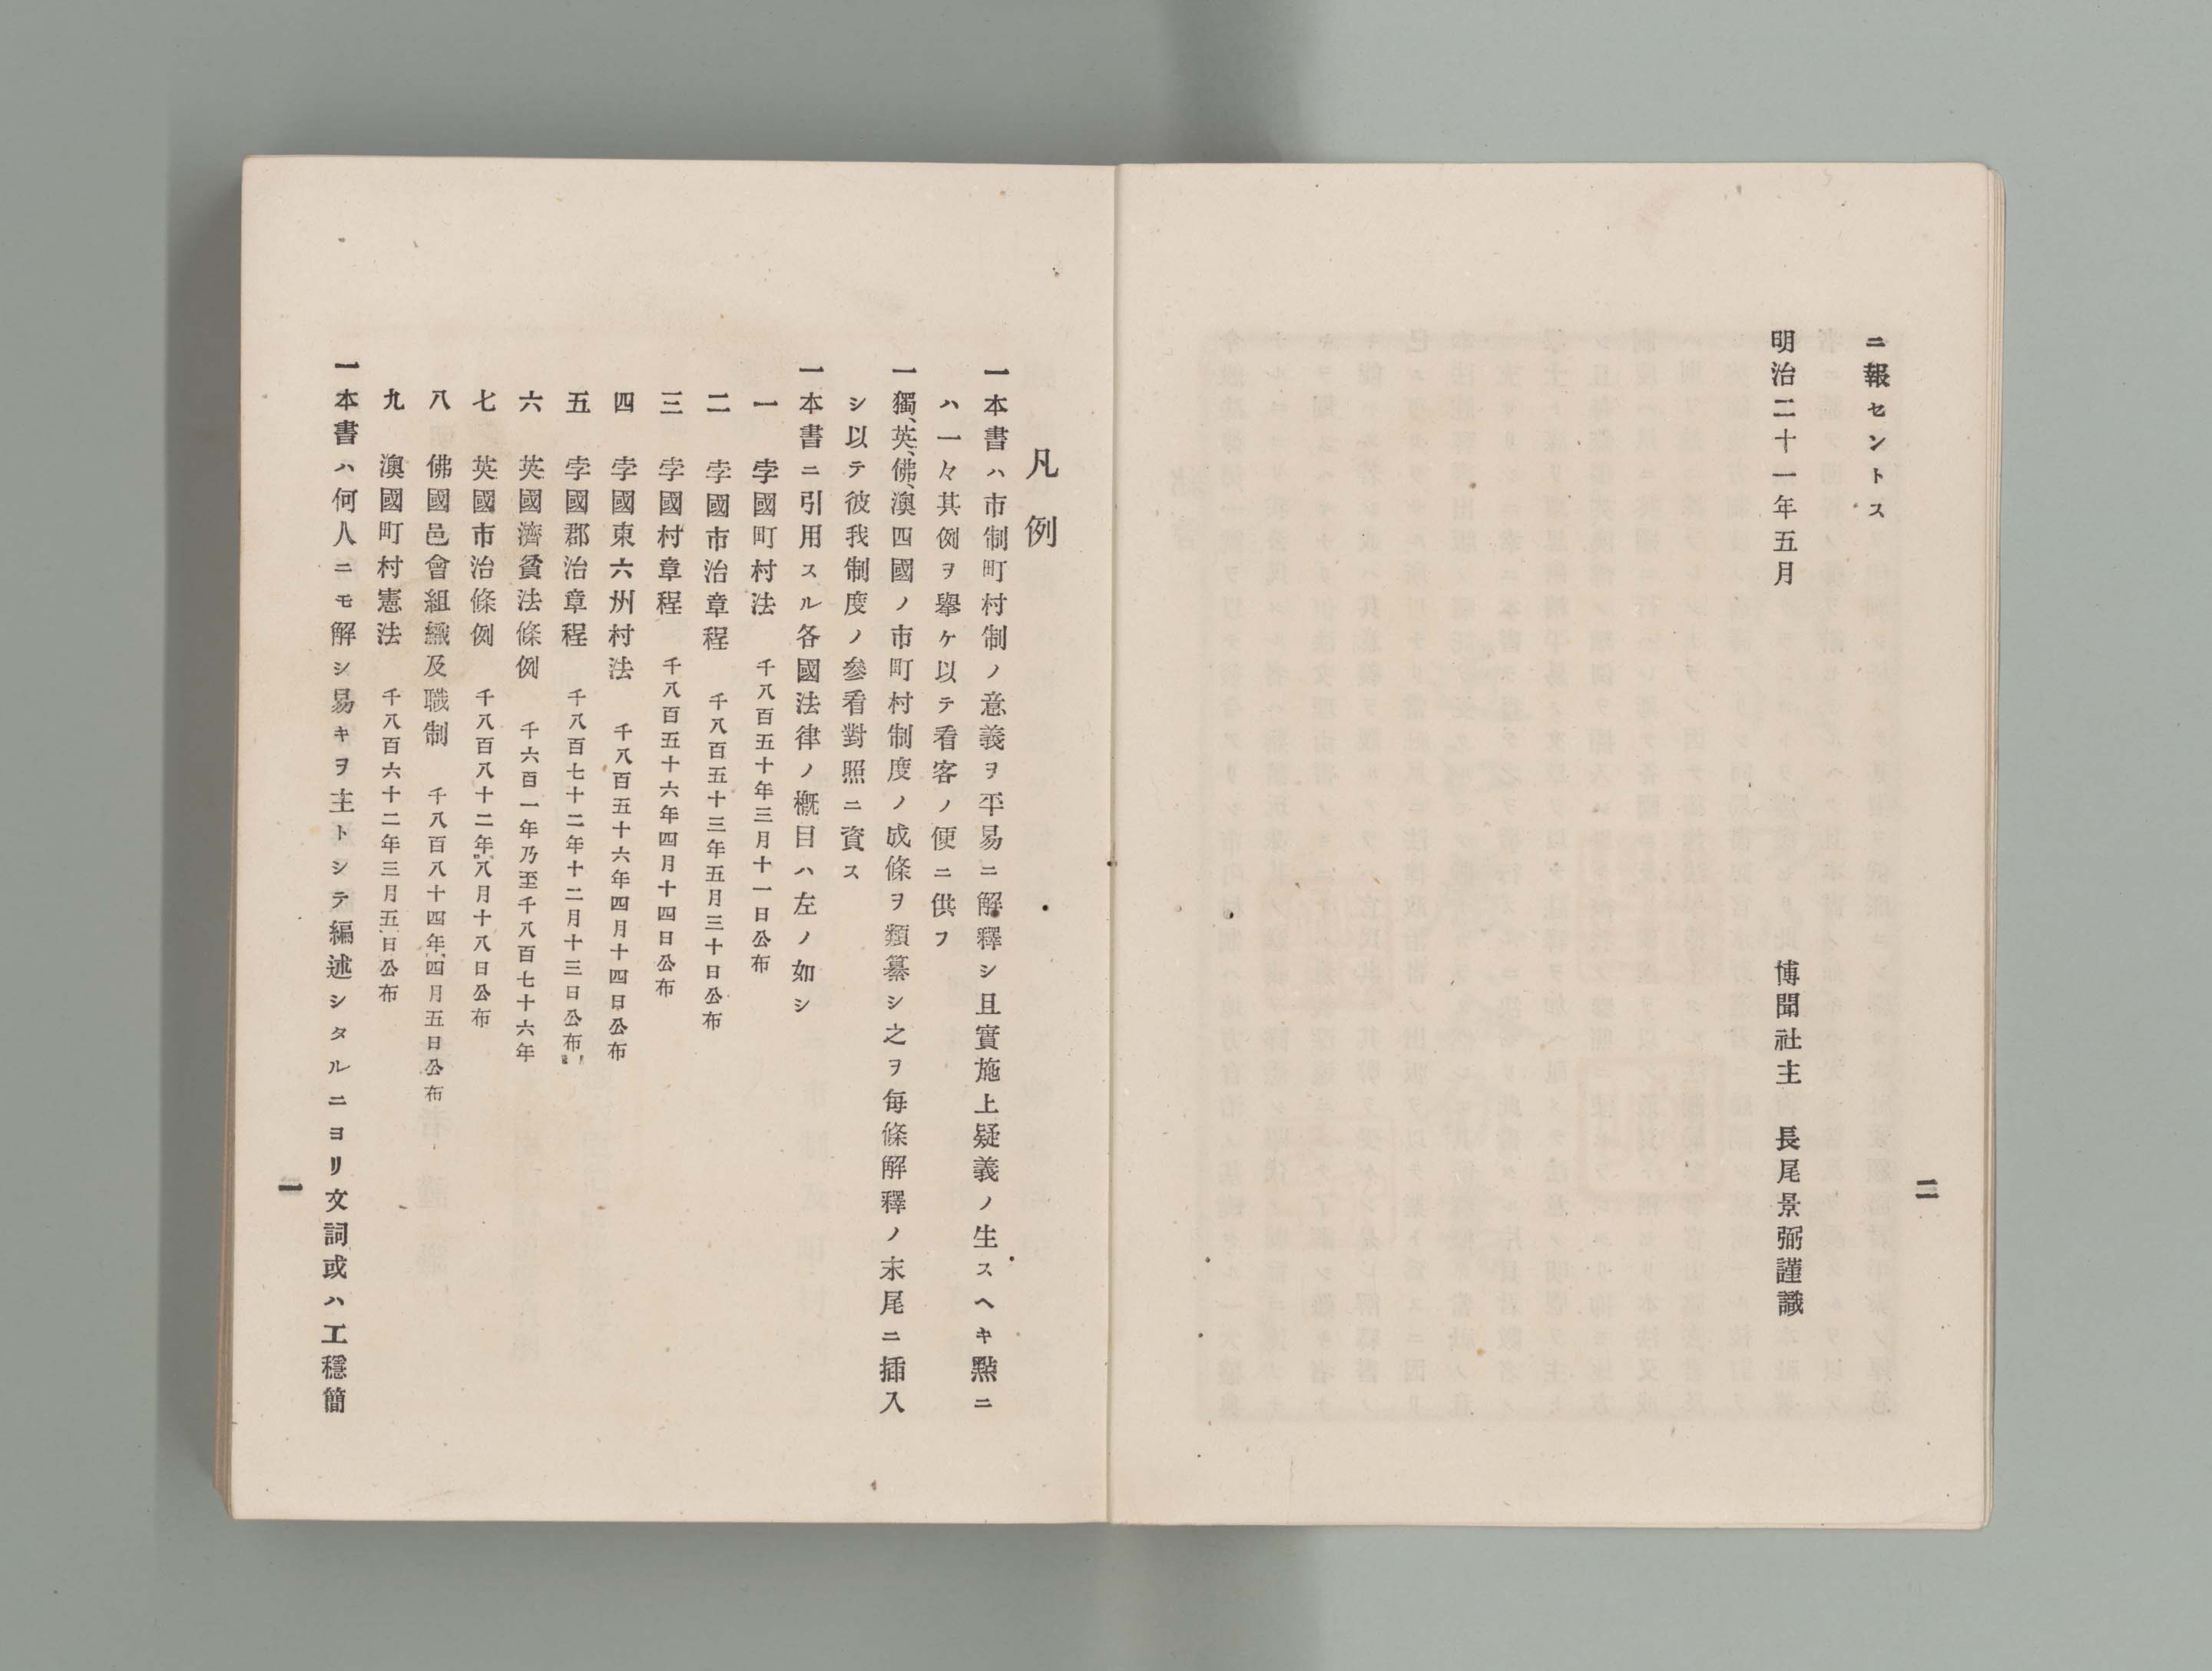 ニ報セントス
明治二十一年五月
博聞社主　長尾景弼謹識
二
凡例
一本書ハ市制町村制ノ意義ヲ平易ニ解釋シ且實施上疑義ノ生スヘキ㸃ニ
ハ一々其例ヲ擧ケ以テ看客ノ便ニ供フ
一獨、英、佛、澳四國ノ市町村制度ノ成條ヲ類纂シ之ヲ毎條解釋ノ末尾ニ插入
シ以テ彼我制度ノ參看對照ニ資ス
一本書ニ引用スル各國法律ノ概目ハ左ノ如シ
一　孛國町村法　千八百五十年三月十一日公布
二　孛國市治章程　千八百五十三年五月三十日公布
三　孛國村章程　千八百五十六年四月十四日公布
四　孛國東六州村法　千八百五十六年四月十四日公布
五　孛國郡治章程　千八百七十二年十二月十三日公布
六　英國濟貧法條例　千六百一年乃至千八百七十六年
七　英國市治條例　千八百八十二年八月十八日公布
八　佛國邑會組織及職制　千八百八十四年四月五日公布
九　澳國町村憲法　千八百六十二年三月五日公布
一本書ハ何人ニモ解シ易キヲ主トシテ編述シタルニヨリ文詞或ハ工穩簡
一